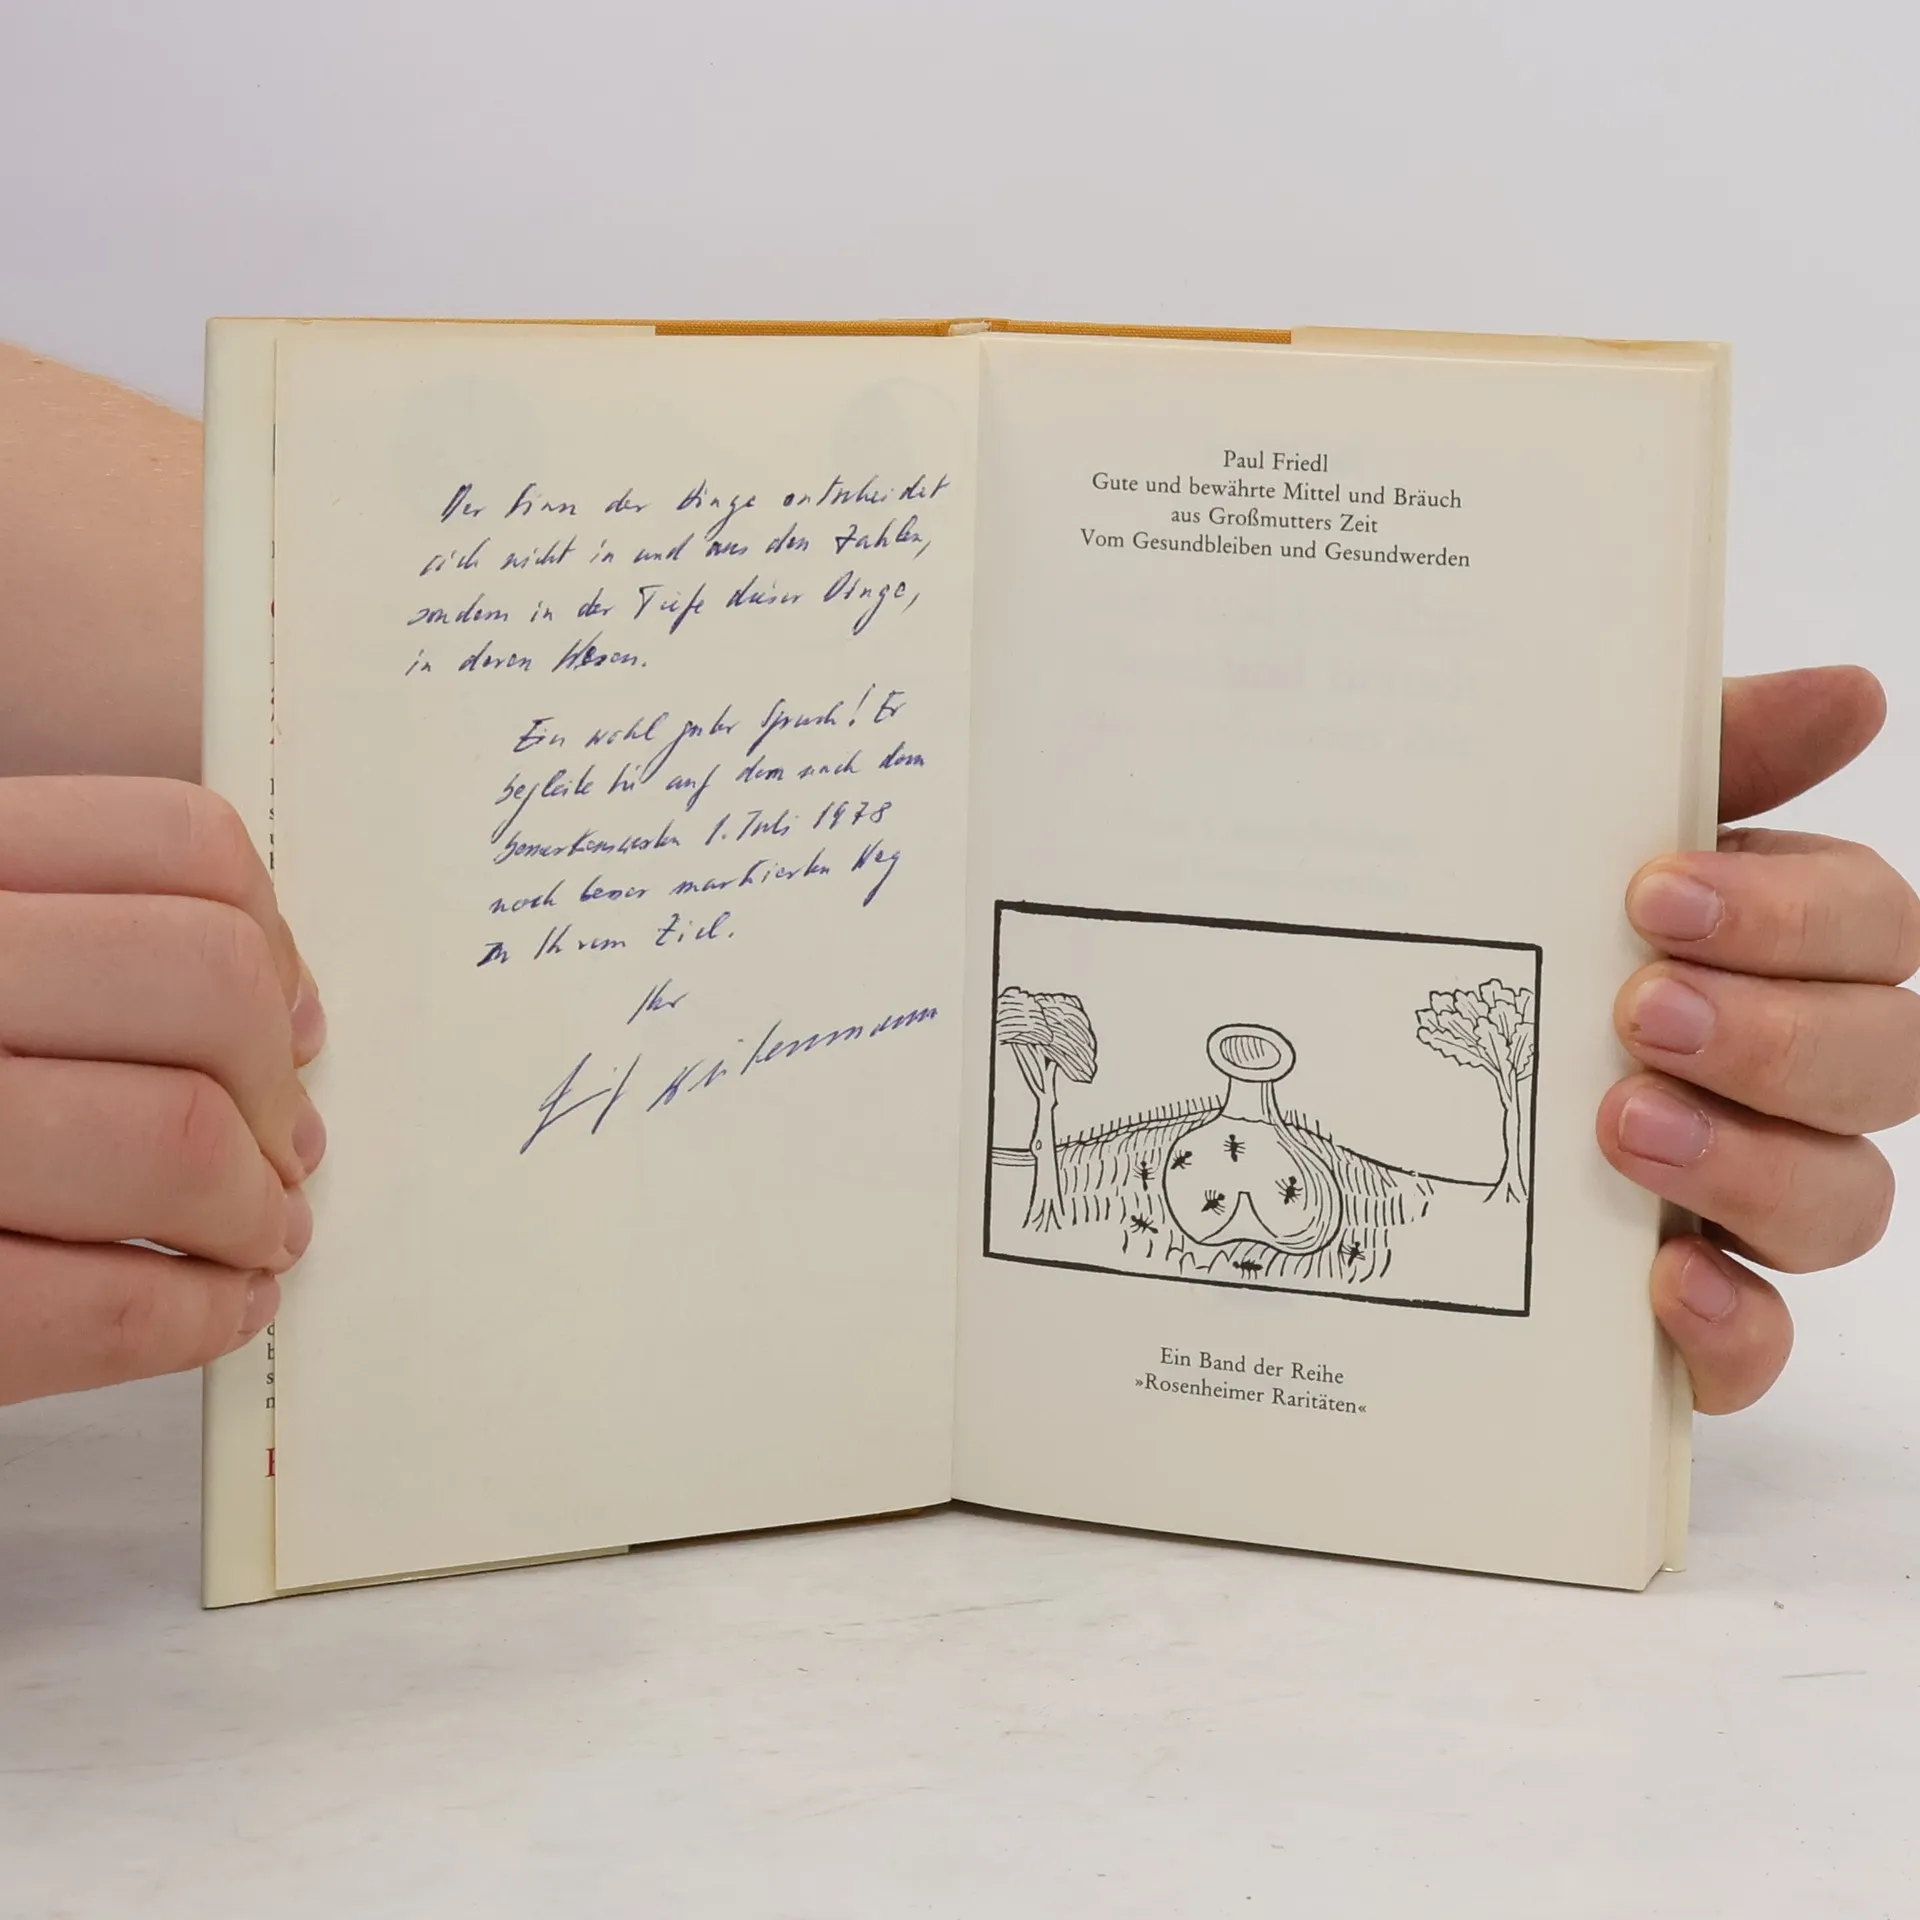 Der Sinn der Dinge entscheidet
sich nicht in und aus den Zahlen,
sondern in der Tiefe dieser Dinge,
in deren Wesen.
Ein wohl guter Spruch! Er
begleite Sie auf dem nach dem
bemerkenswerten 1. Juli 1978
noch besser markierten Weg
zu Ihrem Ziel.
Ihr
Paul Friedl
Gute und bewährte Mittel und Bräuch
aus Großmutters Zeit
Vom Gesundbleiben und Gesundwerden
Ein Band der Reihe
»Rosenheimer Raritäten«